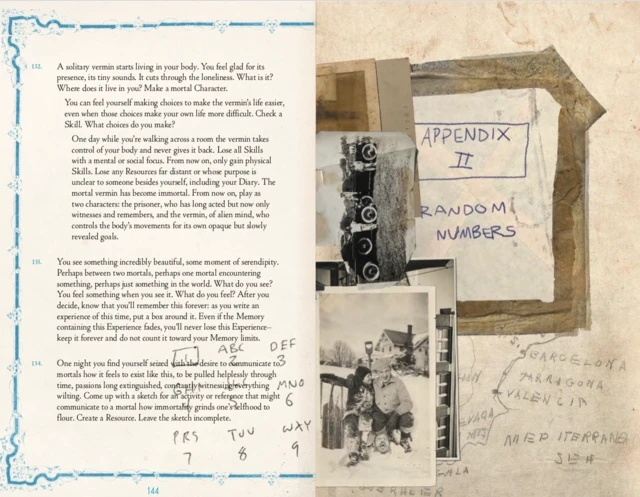 132. A solitary vermin starts living in your body. You feel glad for its
presence, its tiny sounds. It cuts through the loneliness. What is it?
Where does it live in you? Make a mortal Character.
You can feel yourself making choices to make the vermin's life easier,
even when those choices make your own life more difficult. Check a
Skill. What choices do you make?
One day while you're walking across a room the vermin takes
control of your body and never gives it back. Lose all Skills
with a mental or social focus. From now on, only gain physical
Skills. Lose any Resources far distant or whose purpose is
unclear to someone besides yourself, including your Diary. The
mortal vermin has become immortal. From now on, play as
two characters: the prisoner, who has long acted but now only
witnesses and remembers, and the vermin, of alien mind, who
controls the body's movements for its own opaque but slowly
revealed goals.
133. You see something incredibly beautiful, some moment of serendipity.
Perhaps between two mortals, perhaps one mortal encountering
something, perhaps just something in the world. What do you see?
You feel something when you see it. What do you feel? After you
decide, know that you'll remember this forever: as you write an
experience of this time, put a box around it. Even if the Memory
containing this Experience fades, you'll never lose this Experience–
keep it forever and do not count it toward your Memory limits.
ABC DEF
134. One night you find yourself seized with the desire to communicate to
2 3
mortals how it feels to exist like this, to be pulled helplessly through
time, passions long extinguished, constantly witnessing everything
MNO
wilting. Come up with a sketch for an activity or reference that might
6
communicate to a mortal how immortality grinds one's selfhood to
flour. Create a Resource. Leave the sketch incomplete.
PRS TUV WXY
7 8 9
144
APPENDIX
II
RANDOM
NUMBERS
BARCELONA
TARRAGONA
VALENCIA
MEDITERRANE
SEA